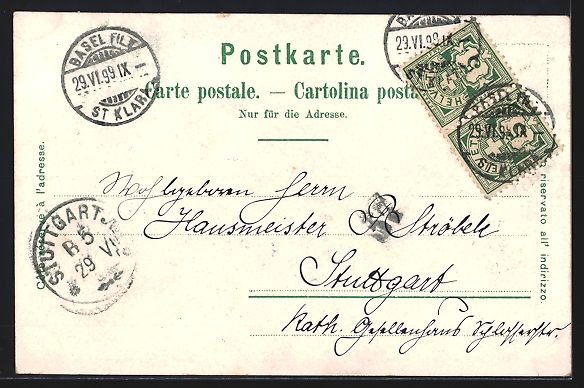 BASEL FIL.
29.VI.99.IX
ST KLARA
29.VI.99.IX
Postkarte.
Carte postale. — Cartolina posta
Nur für die Adresse.
29.VI.99.IX
Côté réservé à l'adresse.
riservato all' indirizzo.
STUTTGART
B 5
29 VI
Wohlgeboren Herrn
Hausmeister B. Ströbele
Stuttgart
Kath. Gesellenhaus Schlosserstr.